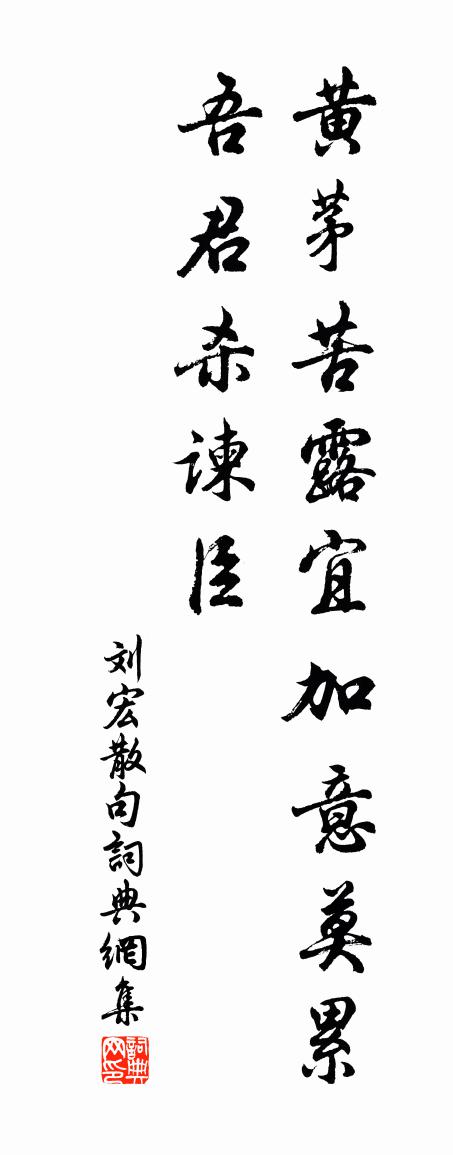 黄茅苦露宜加意莫累
吾君杀諫臣
刘宏散句詞典網集
詞典网印